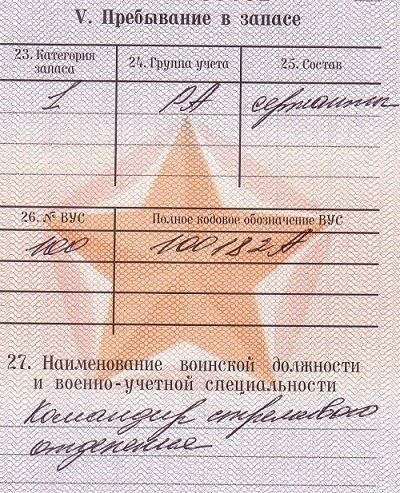 V. Пребывание в запасе
23. Категория запаса 24. Группа учета 25. Состав
I РА сержанты
26. № ВУС Полное кодовое обозначение ВУС
100 100182А
27. Наименование воинской должности
и военно-учетной специальности
Командир стрелкового
отделения